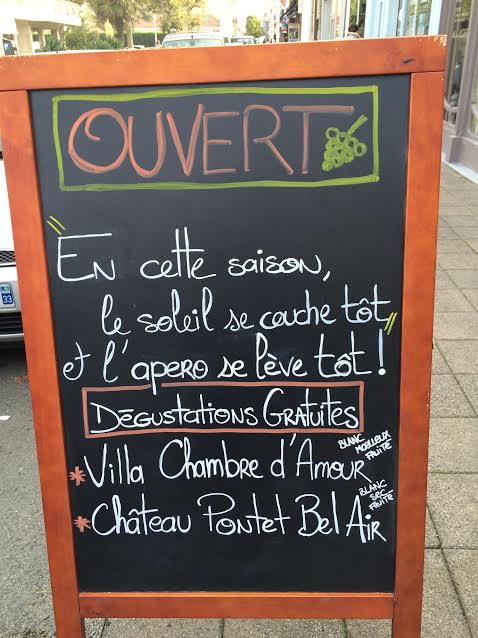 OUVERT
"En cette saison,
le soleil se couche tôt
et l'apero se lève tôt!"
DÉGUSTATIONS GRATUITES
* Villa Chambre d'Amour
BLANC
MOELLEUX
FRUITÉ
* Château Pontet Bel Air
BLANC
SEC
FRUITÉ
33